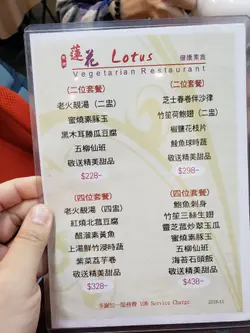 蓮花 Lotus 健康素食
Vegetarian Restaurant
(二位套餐)
老火靚湯 (二盅)
蜜燒素豚玉
黑木耳勝瓜豆腐
五柳仙班
敬送精美甜品
$228-
(二位套餐)
芝士春卷伴沙律
竹笙荷鮑翅 (二盅)
椒鹽花枝片
鮫魚球時蔬
敬送精美甜品
$298-
(四位套餐)
老火靚湯 (四盅)
紅燒北菰豆腐
醋溜素黃魚
上湯鮮竹浸時蔬
紫菜荔芋卷
敬送精美甜品
$328-
(四位套餐)
鮑魚刺身
竹笙三絲生翅
靈芝菰炒翠玉瓜
蜜燒素豚玉
五柳仙班
海苔石頭飯
敬送精美甜品
$438-
多謝加一服務費 10% Service Charge
2018.11